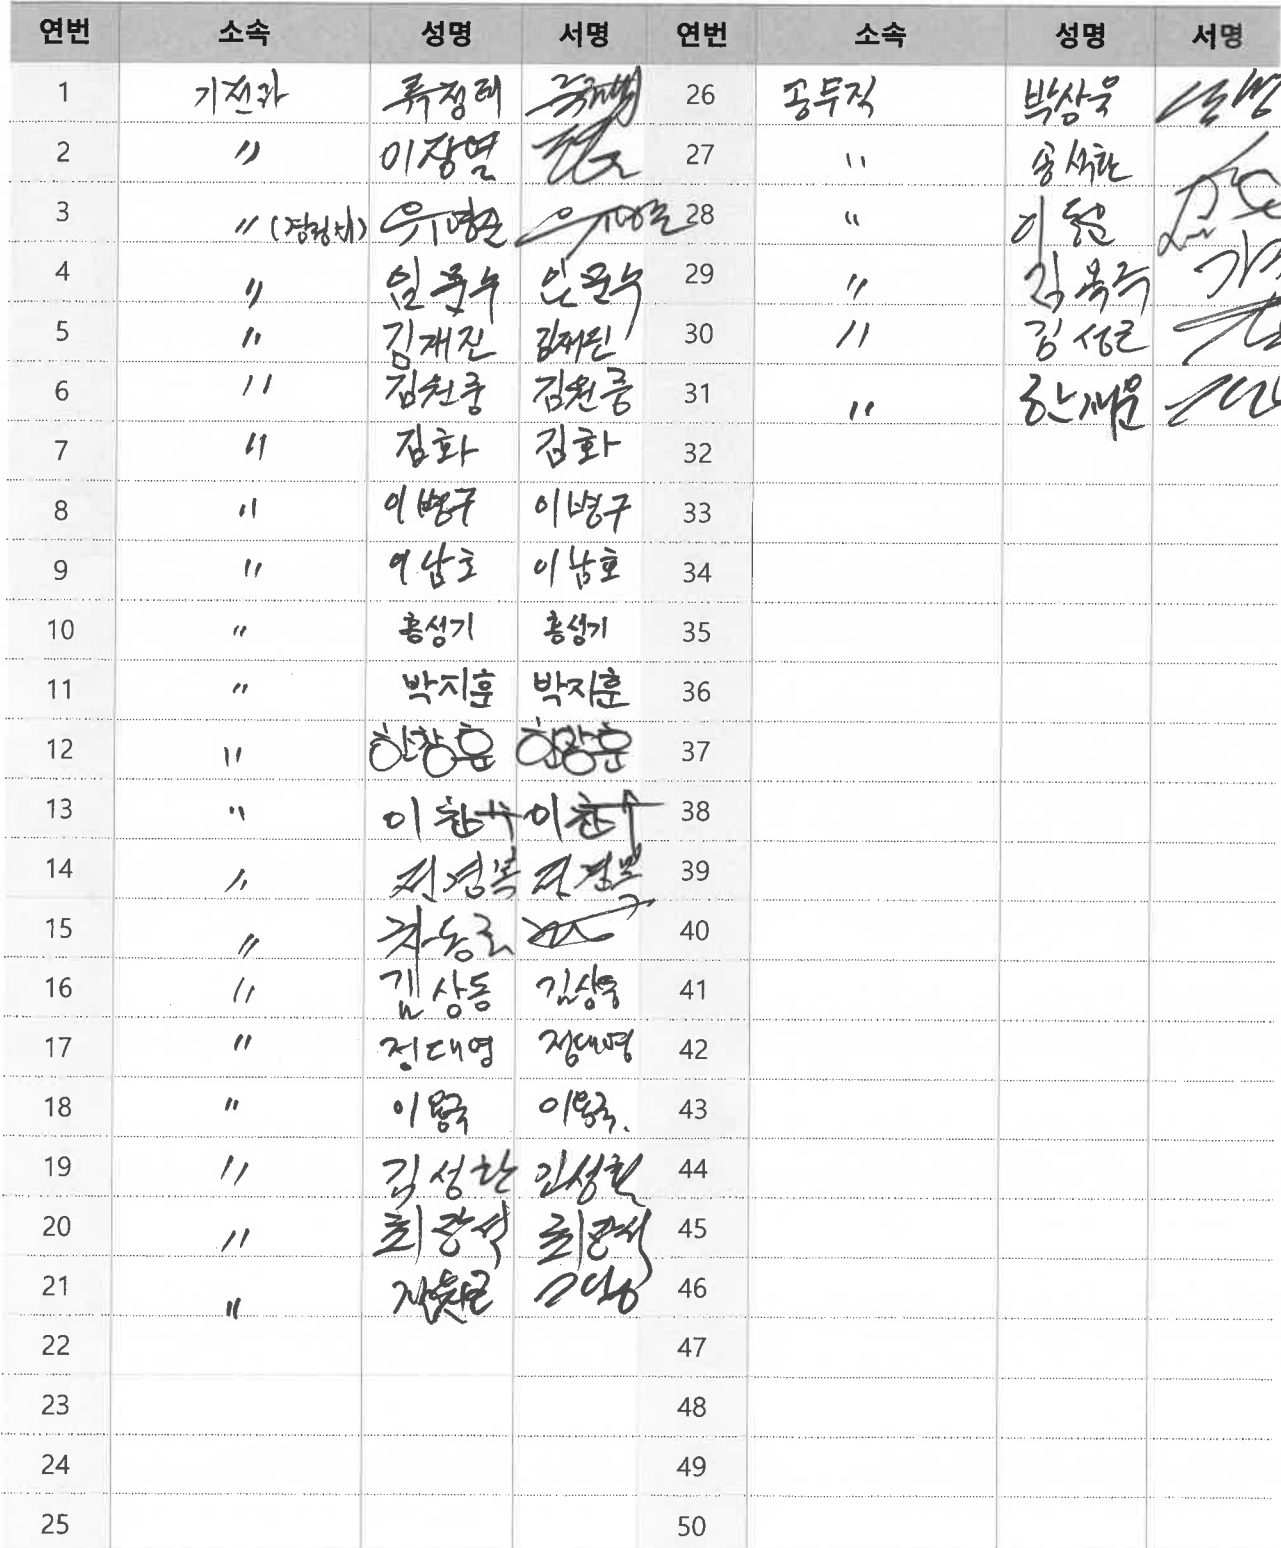 연번 소속 성명 서명 연번 소속 성명 서명
1 기전과 류정태 26 공무직 박삼욱
2 〃 이장열 27 〃 송석환
3 〃 28 〃 이동원
4 〃 임문수 임문수 29 〃 김옥주
5 〃 김재진 김재진 30 〃 김성근
6 〃 김원중 김원중 31 〃 한재문
7 〃 김화 김화 32
8 〃 이병구 이병구 33
9 〃 이남호 이남호 34
10 〃 홍성기 홍성기 35
11 〃 박지훈 박지훈 36
12 〃 한창훈 한창훈 37
13 〃 이환수 38
14 〃 전경복 39
15 〃 40
16 〃 김상동 김상동 41
17 〃 정대영 정대영 42
18 〃 이용국 이용국. 43
19 〃 김성환 김성환 44
20 〃 최광석 최광석 45
21 〃 46
22 47
23 48
24 49
25 50